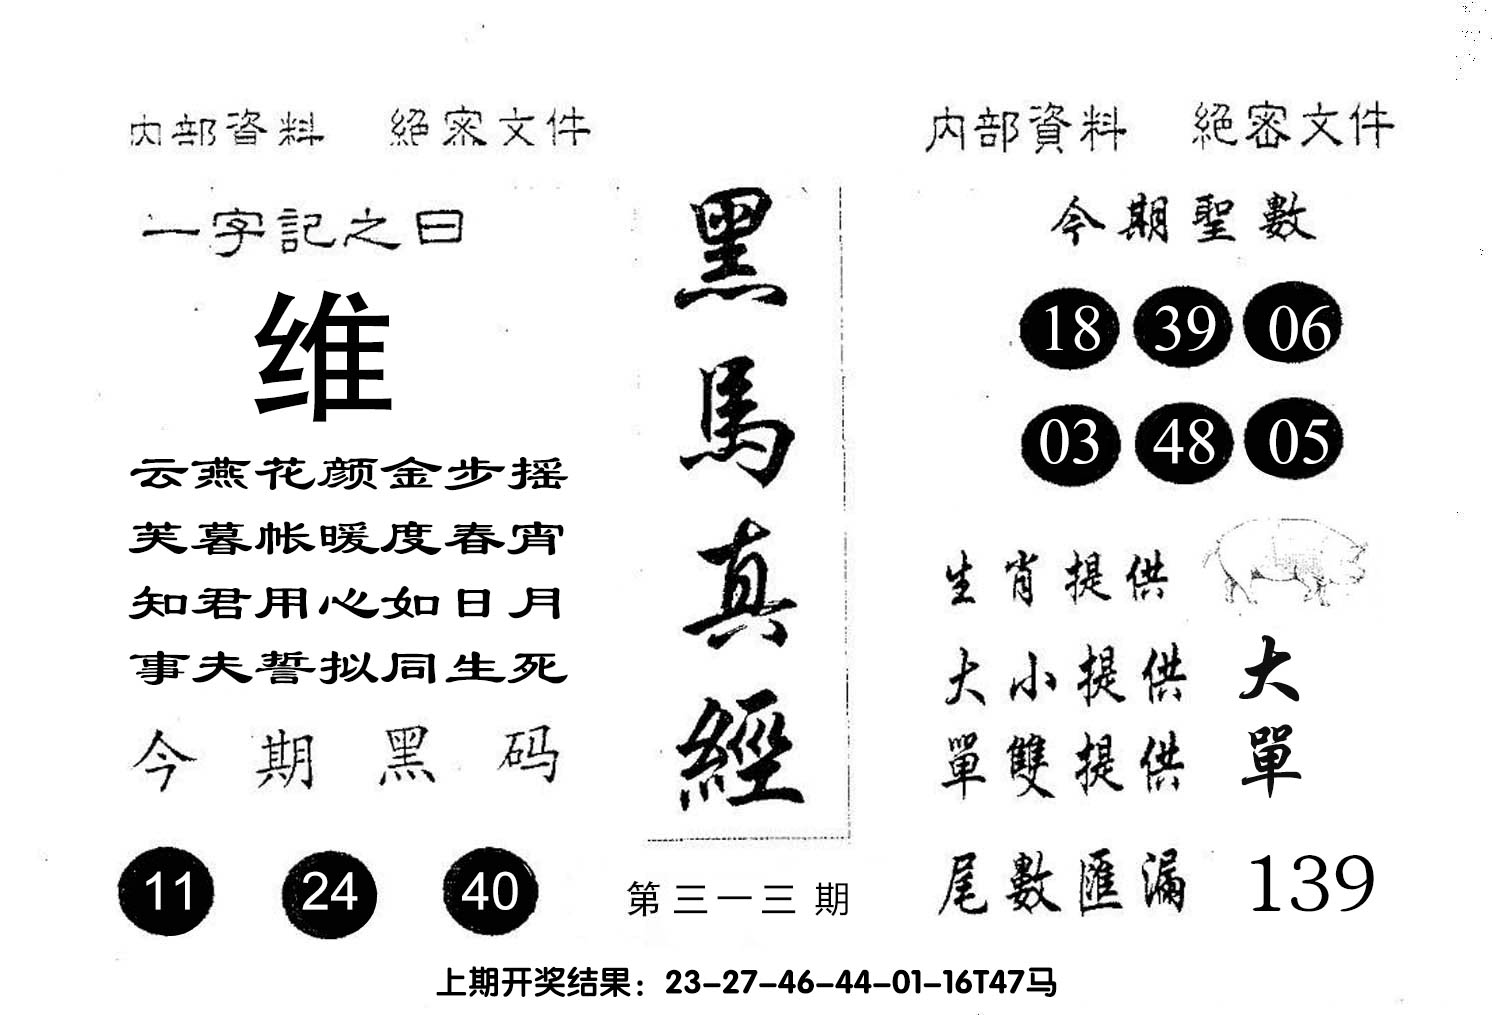 内部資料 絕密文件
一字記之曰
维
云燕花颜金步摇
芙暮帐暖度春宵
知君用心如日月
事夫誓拟同生死
今期黑码
11 24 40
黑馬真經
第三一三期
内部資料 絕密文件
今期聖數
18 39 06
03 48 05
生肖提供
大小提供 大
單雙提供 單
尾數匯漏 139
上期开奖结果：23-27-46-44-01-16T47马